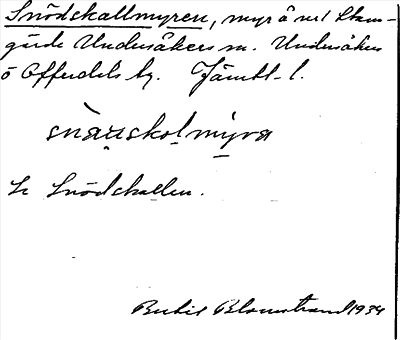 Snödskallmyren, myr å nv/ Stam-
gärde Undersåkers sn. Undersåkers
o Offerdals tg. Jämtl. l.
snäuskolmyra
Se Snödskallen.
Bertil Blomstrand 1934